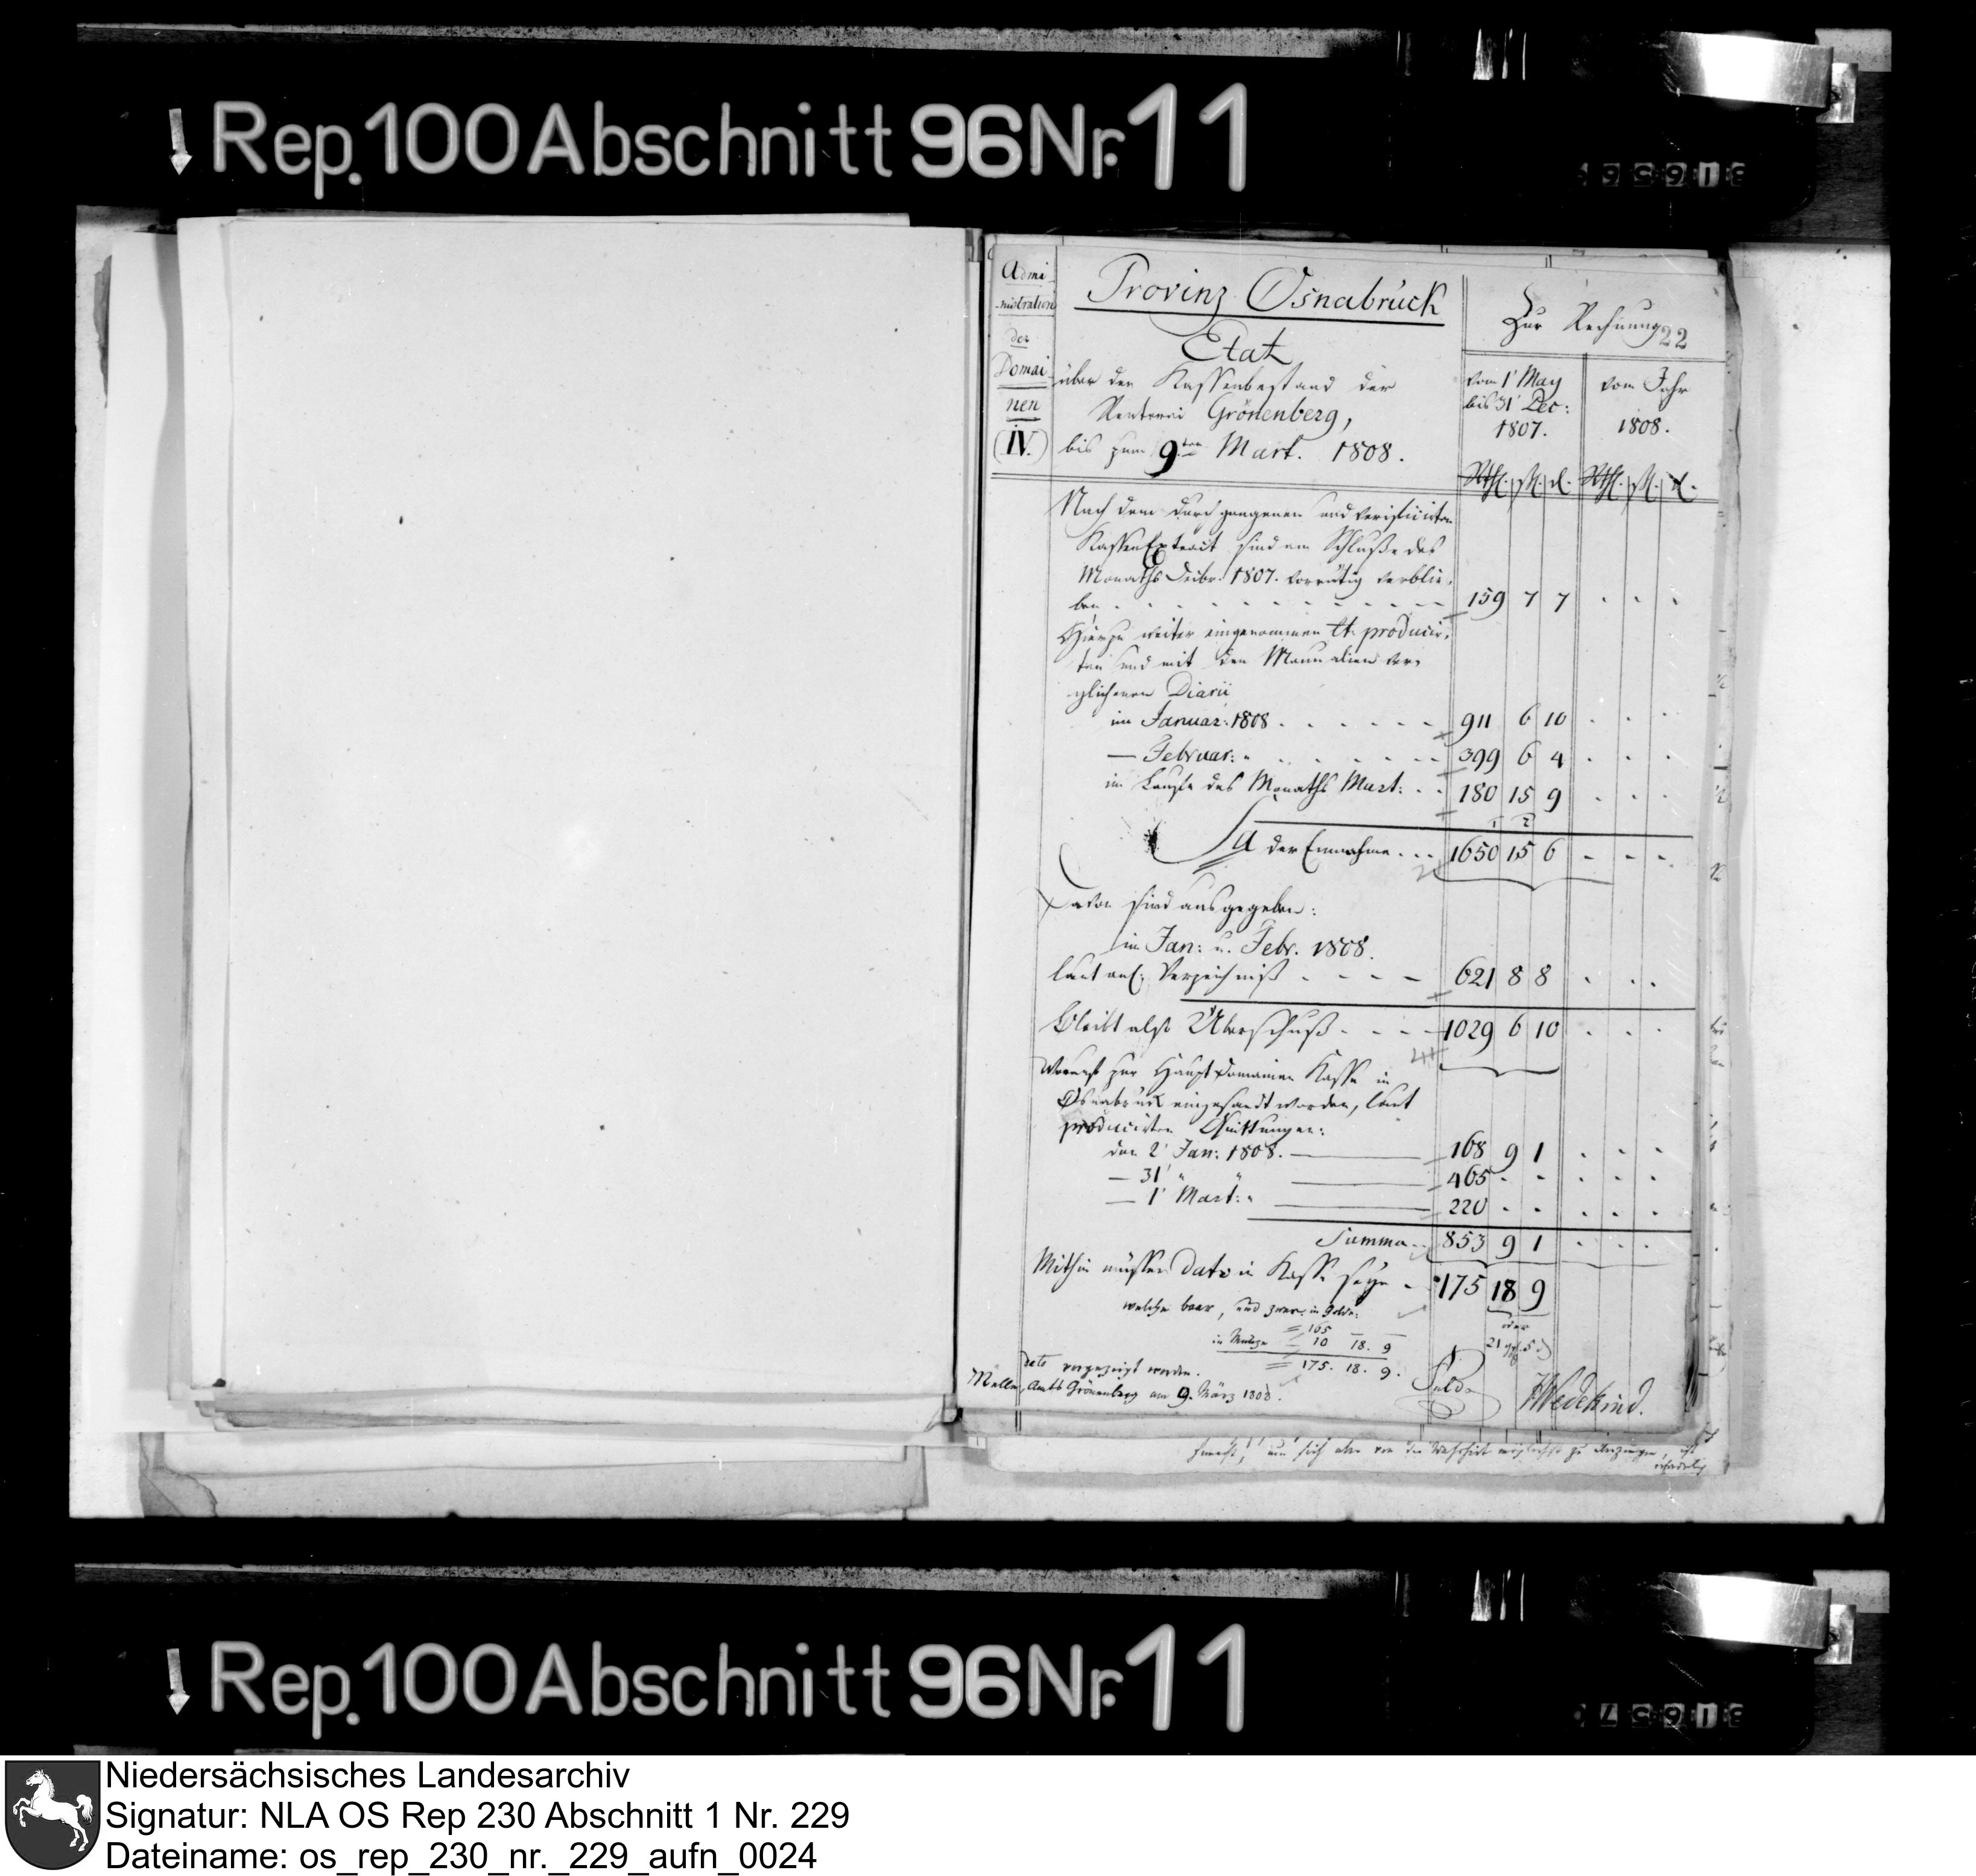 Rep. 100 Abschnitt 96 Nr. 11
Admi
nistration
der
Domai
nen
(IV.)
Provinz Osnabrück
Etat
über den Kassenbestand der
Renterei Grönenberg,
bis zum 9ten Mart. 1808.
Zur Rechnung
22
vom 1' May
bis 31' Dec:
1807.
vom Jahr
1808.
Rthl. ßl. d. Rthl. ßl. d.
Nach dem durchgangenen und verificirten
Kassen Extract sind am Schlusse des
Monaths Decbr. 1807. vorrätig verblie-
ben 159 7 7
Hierzu weiter eingenommen lt. producir-
ten und mit den Manualien ver-
glichenen Diarii
im Januar: 1808 911 6 10
— Februar: " 399 6 4
im Laufe des Monaths Mart: 180 15 9
1 2
Sa der Einnahme 1650 15 6
Davon sind ausgegeben:
in Jan: u. Febr. 1808.
laut anl. Verzeichniß 621 8 8
Bleibt also Überschuß 1029 6 10
Worauf zur Haupt Domainen Kasse in
Osnabrück eingesandt worden, laut
producirten Quittungen:
den 2' Jan: 1808. 168 9 1
— 31' " " 465
— 1' Mart: " 220
Summa 853 9 1
Mithin müssen dato in Kasse seyn 175 18 9
welche baar, und zwar in Golde: oder
= 165 21 5
in Münze = 10 18. 9
= 175. 18. 9.
dato vorgezeigt worden.
Melle, Amts Grönenberg am 9. März 1808.
Wedekind.
um sich aber von der Wahrheit zu
Rep. 100 Abschnitt 96 Nr. 11
Niedersächsisches Landesarchiv
Signatur: NLA OS Rep 230 Abschnitt 1 Nr. 229
Dateiname: os_rep_230_nr._229_aufn_0024